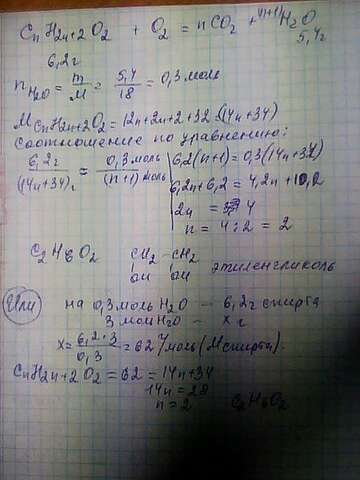 CnH2n+2O2 + O2 = nCO2 + n+1H2O
6,2г 5,4г
nH2O = m/M = 5,4/18 = 0,3 моль
MCnH2n+2O2 = 12n+2n+2+32 = (14n+34)
Соотношение по уравнению:
6,2г/(14n+34)г = 0,3 моль/(n+1) моль
6,2(n+1) = 0,3(14n+34)
6,2n+6,2 = 4,2n+10,2
2n = 4
n = 4:2 = 2
C2H6O2 CH2 – CH2
OH OH этиленгликоль
Или на 0,3 моль H2O – 6,2г спирта
3 моль H2O – x г
x = 6,2·3/0,3 = 62 г/моль (M спирта).
CnH2n+2O2 = 62 = 14n+34
14n = 28
n = 2 C2H6O2